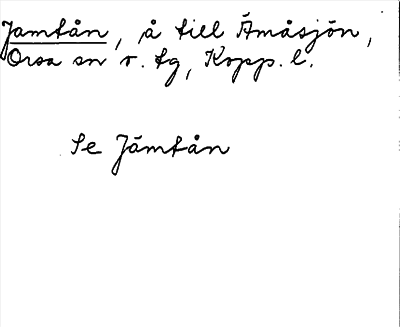 Jamtån, å till Ämåsjön,
Orsa sn o. tg, Kopp. l.
Se Jämtån